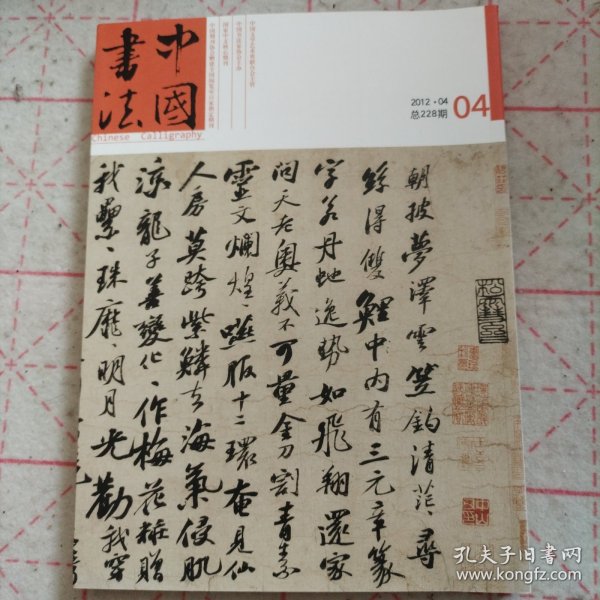 中國
書法
Chinese Calligraphy
2012·04
总228期
04
朝披夢澤雲笠釣清茫茫尋
絲得雙鯉中内有三元章篆
字若丹虵逸勢如飛翔還家
問天老奥義不可量金刀割青素
靈文爛煌煌嚥服十二環奄見仙
人房莫跨紫鱗去海氣侵肌
涼龍子善變化化作梅花粧贈
我纍纍珠靡靡明月光勸我穿
孔夫子旧书网
www.kongfz.com